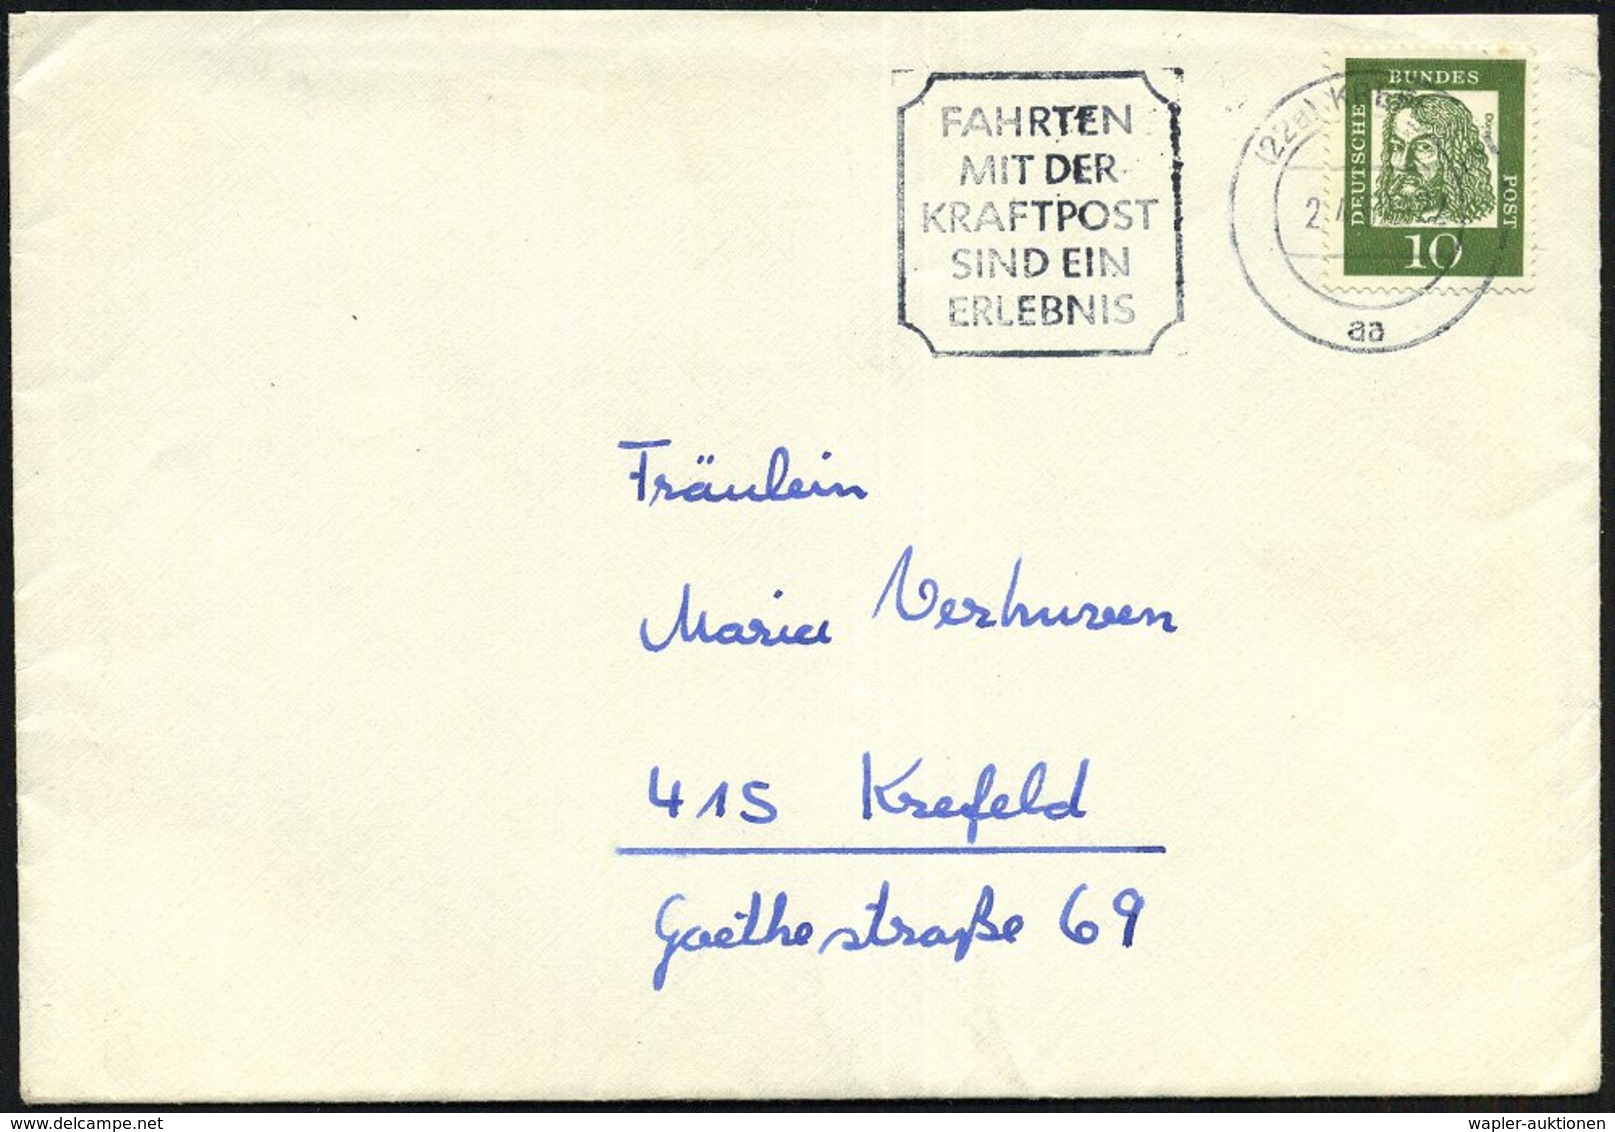 FAHRTEN
MIT DER
KRAFTPOST
SIND EIN
ERLEBNIS
(22a) KRE
aa
DEUTSCHE
BUNDES
POST
10
Fräulein
Maria Verhuven
415 Krefeld
Goethestraße 69
wapler-auktionen
www.delcampe.net